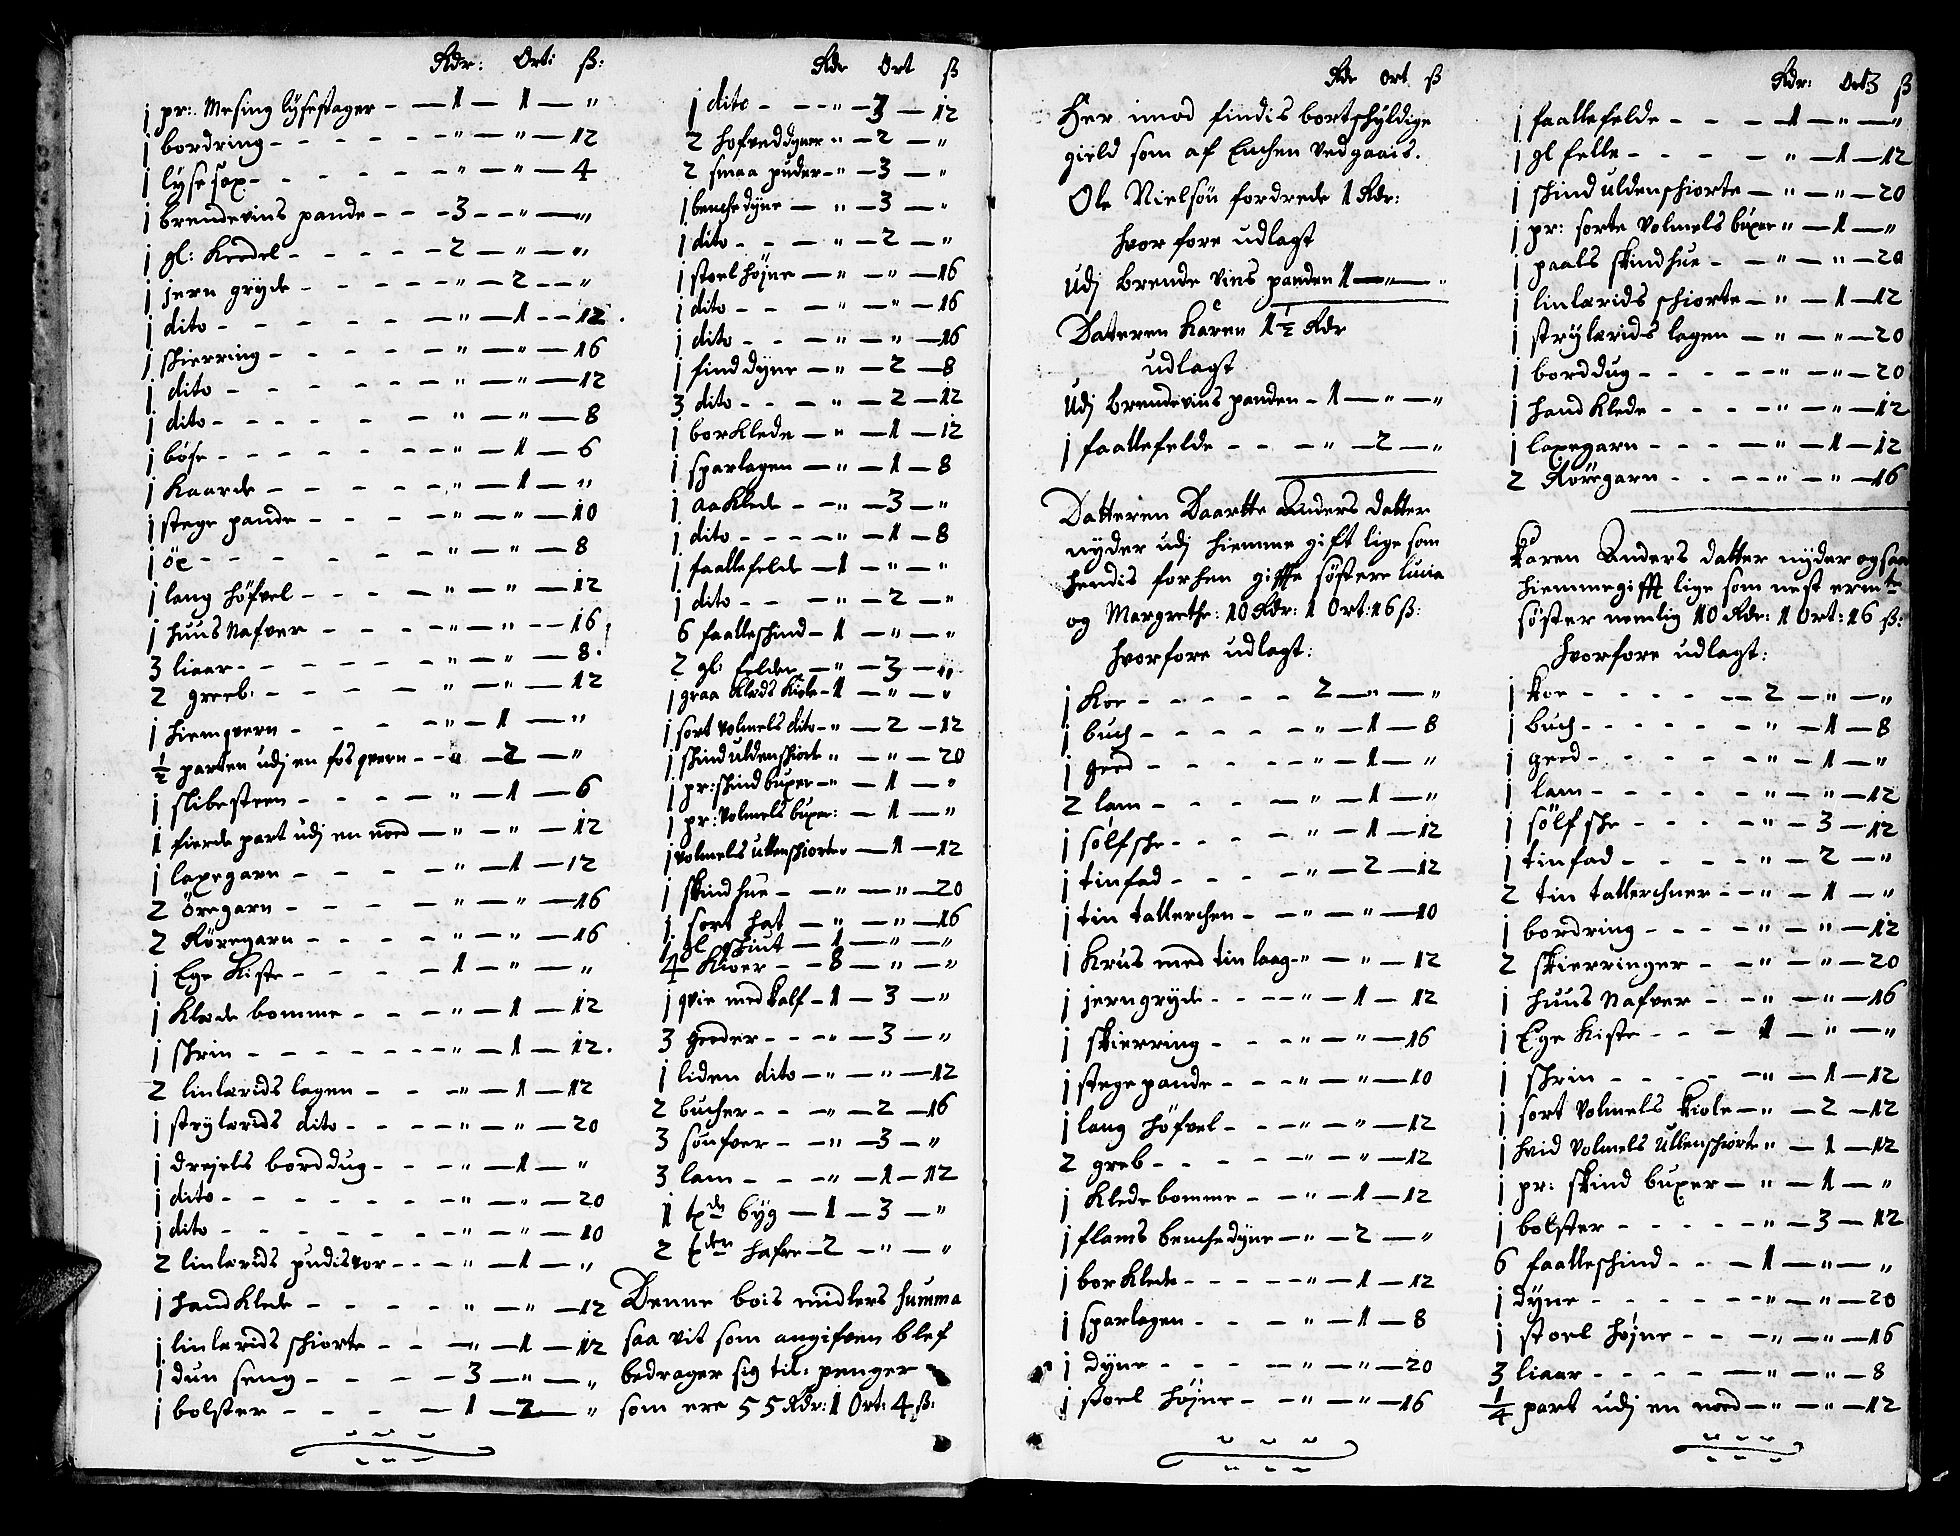 Rdr: Ort: ß:
1 pr: Mesing lysestager - - 1 - 1 - "
1 bordring - - - - - " - " - 12
1 lyse sax - - - - - " - " - 4
1 brendevins pande - - - 3 - " - "
1 gl: Kedel - - - - - 2 - " - "
1 jern gryde - - - - - " - 2 - "
1 dito - - - - - " - 1 - 12
1 skierring - - - - - " - " - 16
1 dito - - - - - " - " - 12
1 dito - - - - - " - " - 8
1 böse - - - - - " - 1 - 6
1 Kaarde - - - - - " - 1 - "
1 stege pande - - - - " - " - 10
1 öe - - - - - " - " - 8
1 lang höfvel - - - - " - " - 12
1 huus Nafver - - - - " - " - 16
3 liaar - - - - - " - " - 8
2 greeb: - - - - - " - " - 12
1 hiemqvern - - - - " - 1 - "
1/2 parten udj en fos qvern - - " - 2 - "
1 slibesteen - - - - " - 1 - 6
1 fierde part udj en nood - " - " - 12
1 laxegarn - - - - " - 1 - 12
2 öregarn - - - - " - " - 16
2 Röregarn - - - - " - " - 16
1 Ege Kiste - - - - 1 - " - "
1 Klæde bomme - - - " - 1 - 12
1 skrin - - - - - " - 1 - 12
2 linlærids lagen - - - " - 1 - 12
1 strylærids dito - - - " - " - 20
1 drejels bord dug - - - " - 1 - "
1 dito - - - - - " - " - 20
1 dito - - - - - " - " - 10
2 linlærids pudisvor - - - " - 1 - "
1 hand Klede - - - - " - " - 12
1 linlærids skiorte - - - " - 1 - 12
1 dun seng - - - - 3 - " - "
1 bolster - - - - 1 - 2 - "
Rdr Ort ß
1 dito - - - " - 3 - 12
2 hofveddyner " - 2 - "
2 smaa puder - " - 3 - "
1 benchedyne - " - 3 - "
1 dito - - - " - 2 - "
1 stoel höjne - " - " - 16
1 dito - - - " - " - 16
1 dito - - - " - " - 16
1 find dyne - " - 2 - 8
3 dito - - - " - 2 - 12
1 borklede - " - 1 - 12
1 sparlagen - " - 1 - 8
1 aaklede - - " - 3 - "
1 dito - - - - " - 1 - 8
1 faallefelde - 1 - " - "
1 dito - - - " - 2 - "
6 faalleskind - 1 - " - "
2 gl: felder - " - 3 - "
1 graa Klæds Kiole - 1 - " - "
1 sort volmels dito - " - 2 - 12
1 skind uldenskiorte " - " - 20
1 pr: skind buxer - " - 1 - "
1 pr: volmels buxer: - 1 - "
1 volmels ullenskiorte - 1 - 12
1 skind hue - - " - " - 20
1 sort hat - " - " - 16
1 gl: skiut - 1 - " - "
4 Kiøer - - 8 - " - "
1 qvie med kalf - 1 - 3 - "
3 geeder - - - " - 3 - "
1 liden dito - " - " - 12
2 bucher - - " - 2 - 16
3 soufver - - " - 3 - "
3 lam - - - " - 1 - 12
1 tøn byg - 1 - 3 - "
2 tdr hafre - 2 - " - "
Denne bois midlers summa
saa vit som angifven blef
bedrager sig til: penger
som ere 55 Rdr: 1 Ort: 4 ß:
Rdr Ort ß
Her imod findis bortskyldige
gield som af Enchen vedgaais.
Ole Nielsön fordrede 1 Rdr:
hvor fore udlagt
Udj Brende vins panden 1 - " - "
Datteren Karen 1 1/2 Rdr
udlagt
Udj Brendevins panden - 1 - " - "
1 faallefelde - - - " - 2 - "
Datteren Daartte Anders datter
nyder udj hiemme gift lige som
hendis forhen giffte söstere Lucia
og Margrethe: 10 Rdr: 1 Ort: 16 ß:
hvorfore udlagt:
1 Koe - - - - 2 - " - "
1 buch - - - - " - 1 - 8
1 geed - - - - " - 1 - "
2 lam - - - - " - 1 - "
1 sölf ske - - - - " - 1 - 12
1 tinfad - - - - " - 2 - 12
1 tin tallerchen - - " - " - 10
1 Krus med tin laag - " - " - 12
1 jerngryde - - - " - 1 - 12
1 skierring - - - " - " - 16
1 stege pande - - - " - " - 10
1 lang höfvel - - - " - " - 12
2 greb - - - - " - " - 12
1 Klede bomme - - " - 1 - 12
1 flams benchedyne - " - 2 - "
1 borklede - - - - " - 1 - 12
1 sparlagen - - - " - 1 - 8
1 dyne - - - - " - " - 20
1 stoel höjne - - " - " - 16
Rdr: Ort ß
1 faallefelde - - - 1 - " - "
1 gl felle - - - " - 1 - 12
1 skind uldenskiorte - " - " - 20
1 pr: sorte volmels buxer " - 1 - "
1 paals skindhue - - " - " - 20
1 linlærids skiorte - " - 1 - 12
1 strylærids lagen - " - " - 20
1 bord dug - - - - " - " - 20
1 hand Klede - - - " - " - 12
1 laxegarn - - - - " - 1 - 12
2 Röregarn - - - " - " - 16
Karen Anders datter nyder ogsaa
hiemmegifft lige som nest ermte
söster nemlig 10 Rdr: 1 Ort: 16 ß:
hvorfore udlagt:
1 Koe - - - - 2 - " - "
1 buch - - - - " - 1 - 8
1 geed - - - - " - 1 - "
1 lam - - - - " - " - 12
1 sölf ske - - - " - 3 - 12
1 tinfad - - - - " - 2 - "
2 tin tallerchner - - " - 1 - "
1 bordring - - - " - " - 12
2 skierringer - - " - " - 20
1 huus Nafver - - " - " - 16
1 Ege Kiste - - - 1 - " - "
1 skrin - - - - " - 1 - 12
1 sort volmels Kiole - " - 2 - 12
1 hvid volmels ullenskiorte " - 1 - 12
1 pr: skind buxer - " - 1 - "
1 bolster - - - - " - 3 - 12
6 faalleskind - - - 1 - " - "
1 dyne - - - - " - " - 20
1 stoel höjne - - - " - " - 16
3 liaar - - - - " - " - 8
1/4 part udj en nood - " - " - 12